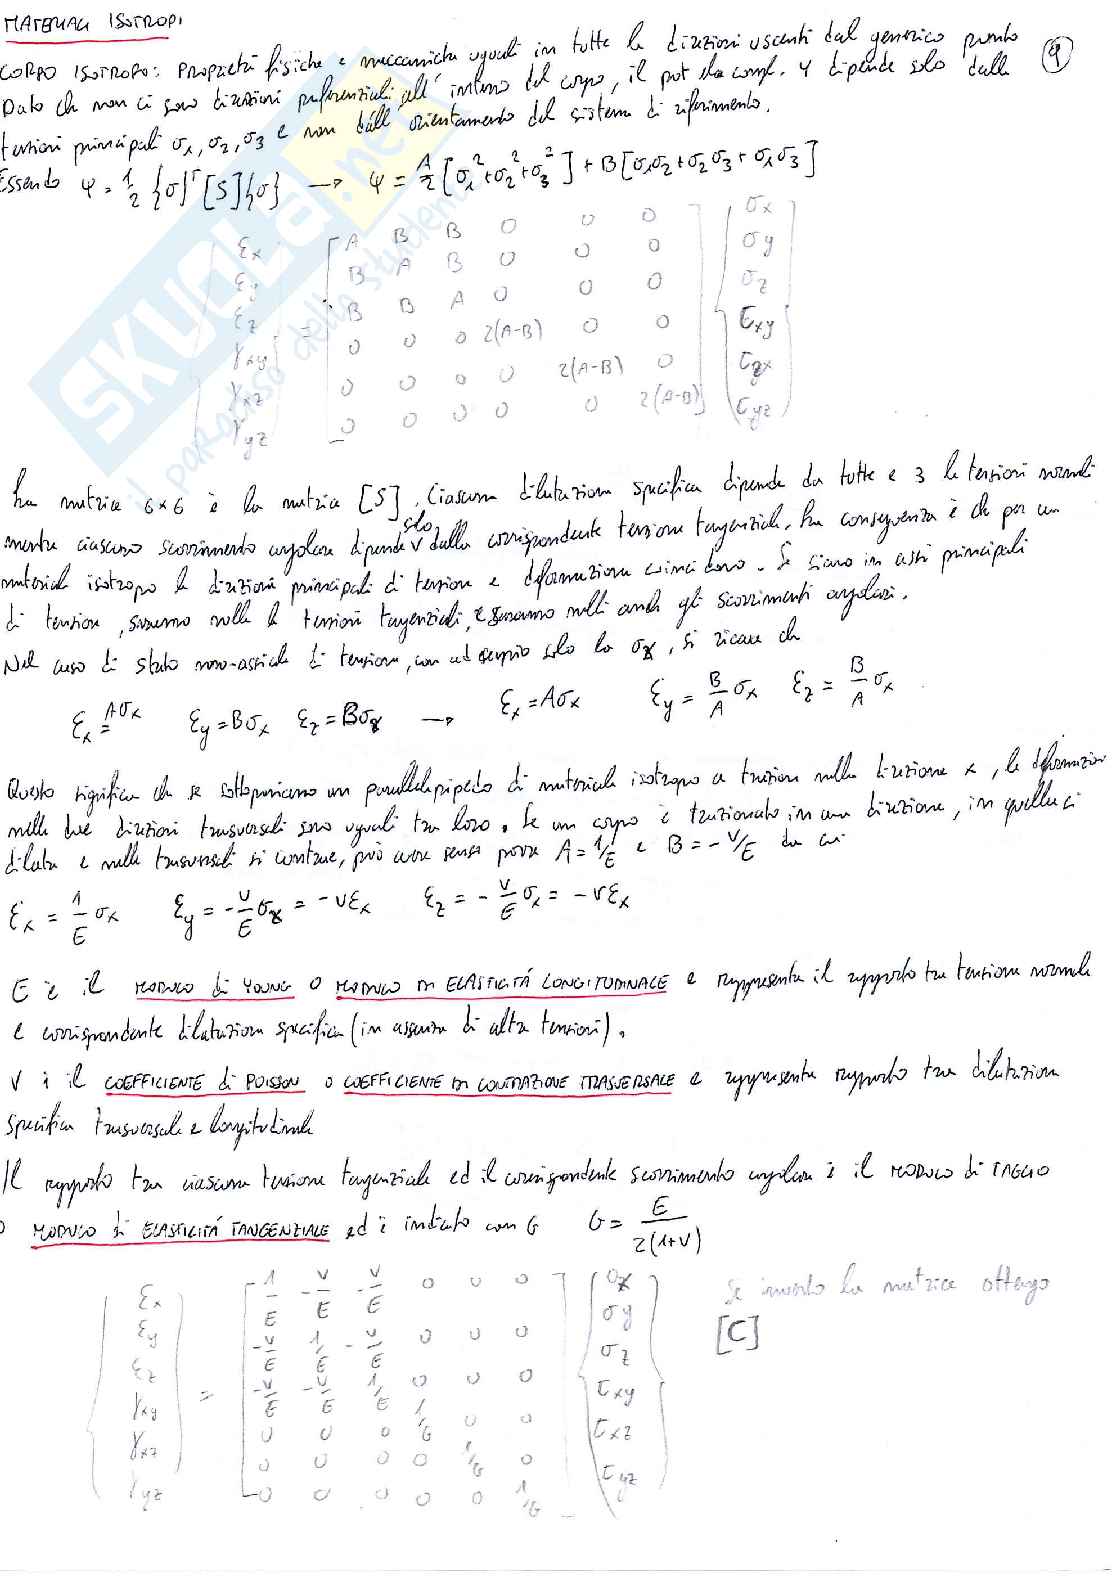 MATERIALI ISOTROPI
CORPO ISOTROPO: Proprietà fisiche e meccaniche uguali in tutte le direzioni uscenti dal generico punto
9
Dato che non ci sono direzioni preferenziali all'interno del corpo, il pot. ela. compl. ψ dipende solo dalle
tensioni principali σ1, σ2, σ3 e non dall'orientamento del sistema di riferimento.
Essendo ψ = 1/2 {σ}^T [S]{σ} → ψ = A/2 [σ1² + σ2² + σ3²] + B[σ1σ2 + σ2σ3 + σ1σ3]
εx A B B 0 0 0 σx
εy B A B 0 0 0 σy
εz B B A 0 0 0 σz
γxy = 0 0 0 2(A-B) 0 0 τxy
γxz 0 0 0 0 2(A-B) 0 τzx
γyz 0 0 0 0 0 2(A-B) τyz
La matrice 6×6 è la matrice [S]. Ciascuna dilatazione specifica dipende da tutte e 3 le tensioni normali
mentre ciascuno scorrimento angolare dipende solo dalla corrispondente tensione tangenziale. La conseguenza è che per un
materiale isotropo le direzioni principali di tensione e deformazione coincidono. Se siamo in assi principali
di tensione, saranno nulle le tensioni tangenziali, e saranno nulli anche gli scorrimenti angolari.
Nel caso di stato mono-assiale di tensione, con ad esempio solo la σx, si ricava che
εx = Aσx εy = Bσx εz = Bσx → εx = Aσx εy = B/A σx εz = B/A σx
Questo significa che se sottoponiamo un parallelepipedo di materiale isotropo a trazione nella direzione x, le deformazioni
nelle due direzioni trasversali sono uguali tra loro. Se un corpo è trazionato in una direzione, in quella si
dilata e nelle trasversali si contrae, può avere senso porre A = 1/E e B = -ν/E da cui
εx = 1/E σx εy = -ν/E σx = -νεx εz = -ν/E σx = -νεx
E è il MODULO di YOUNG o MODULO DI ELASTICITÁ LONGITUDINALE e rappresenta il rapporto tra tensione normale
e corrispondente dilatazione specifica (in assenza di altre tensioni).
ν è il COEFFICIENTE di POISSON o COEFFICIENTE DI CONTRAZIONE TRASVERSALE e rappresenta rapporto tra dilatazione
specifica trasversale e longitudinale
Il rapporto tra ciascuna tensione tangenziale ed il corrispondente scorrimento angolare è il MODULO di TAGLIO
o MODULO di ELASTICITÁ TANGENZIALE ed è indicato con G G = E/2(1+ν)
εx 1/E -ν/E -ν/E 0 0 0 σx Se inverto la matrice ottengo
εy -ν/E 1/E -ν/E 0 0 0 σy [C]
εz -ν/E -ν/E 1/E 0 0 0 σz
γxy = 0 0 0 1/G 0 0 τxy
γxz 0 0 0 0 1/G 0 τxz
γyz 0 0 0 0 0 1/G τyz
SKUOLA.net
il paradiso dello studente